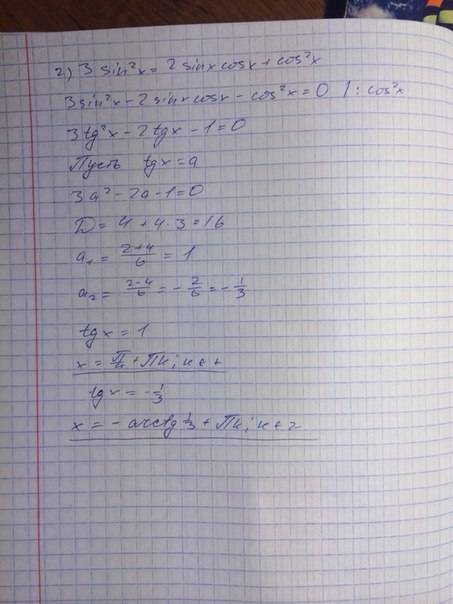 2) 3 sin²x = 2 sinx cosx + cos²x
3sin²x - 2 sinx cosx - cos²x = 0 | : cos²x
3tg²x - 2tgx - 1 = 0
Пусть tgx = a
3a² - 2a - 1 = 0
D = 4 + 4·3 = 16
a₁ = (2+4)/6 = 1
a₂ = (2-4)/6 = -2/6 = -1/3
tgx = 1
x = П/4 + Пк; к ∈ z
tgx = -1/3
x = - arctg 1/3 + Пк; к ∈ z